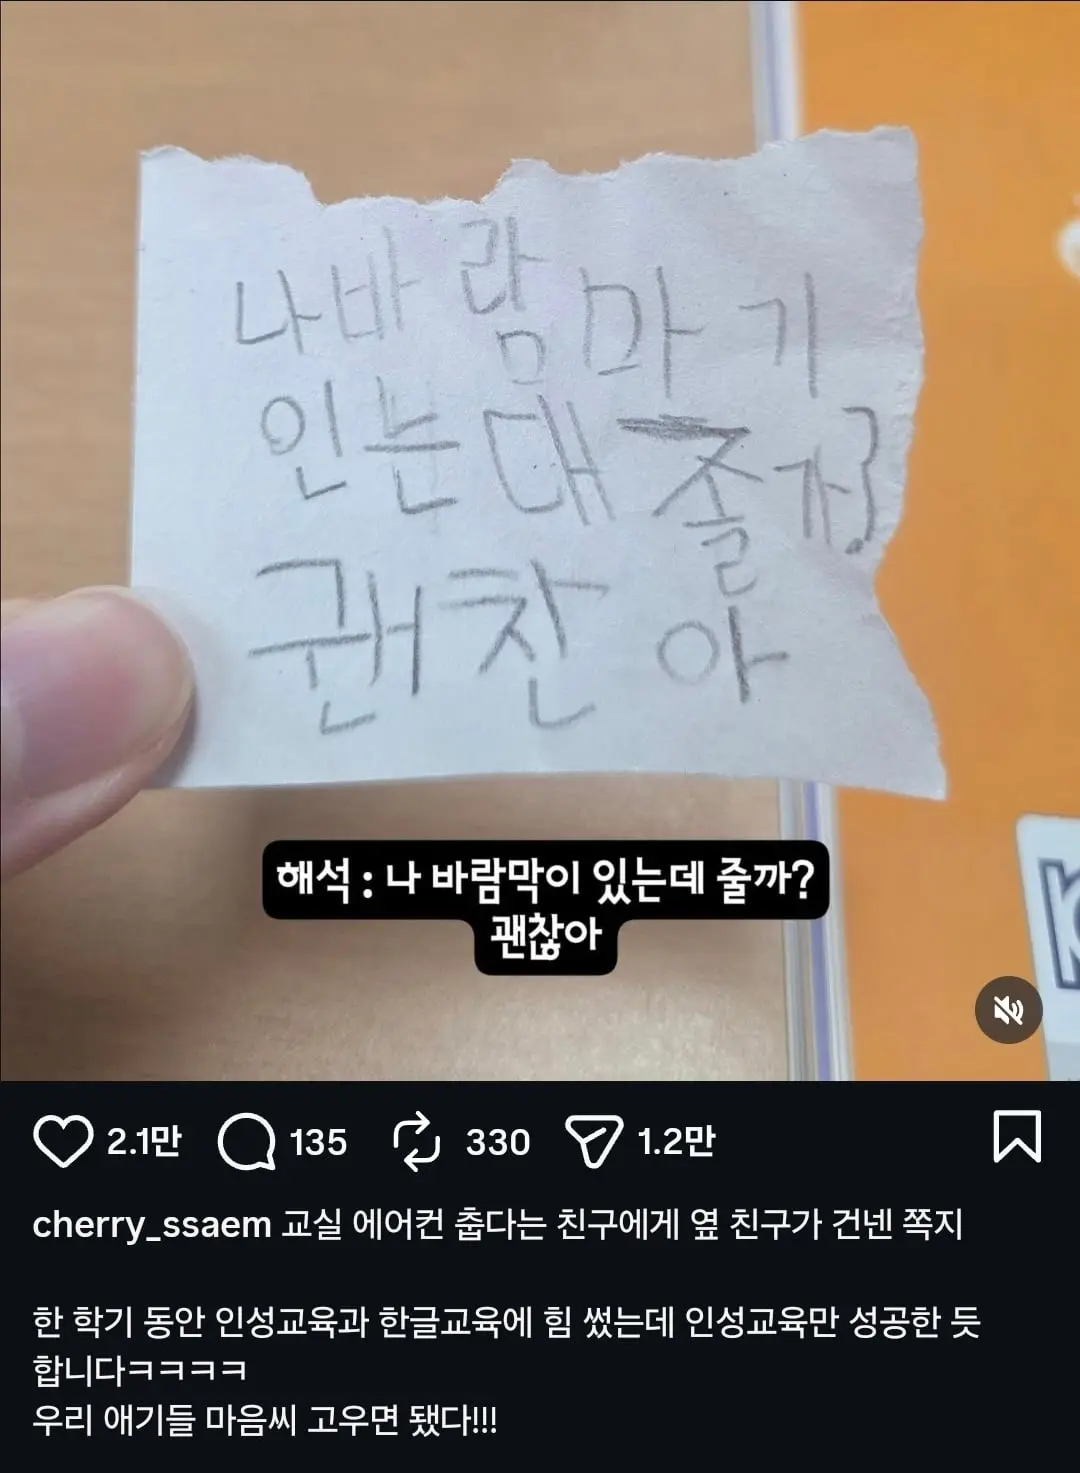 나바람마기
인는대 줄가?
괜찬아
해석 : 나 바람막이 있는데 줄까?
괜찮아
2.1만 135 330 1.2만
cherry_ssaem 교실 에어컨 춥다는 친구에게 옆 친구가 건넨 쪽지
한 학기 동안 인성교육과 한글교육에 힘 썼는데 인성교육만 성공한 듯
합니다ㅋㅋㅋㅋ
우리 애기들 마음씨 고우면 됐다!!!